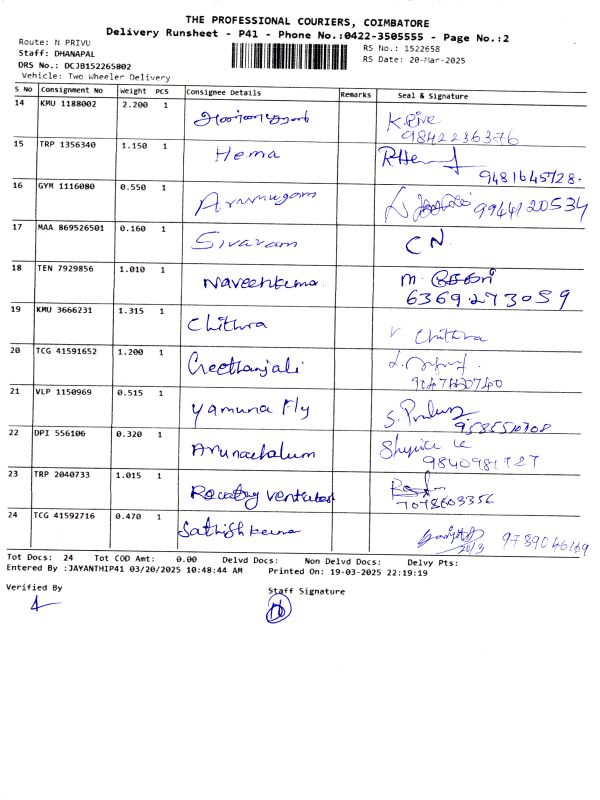 THE PROFESSIONAL COURIERS, COIMBATORE
Delivery Runsheet - P41 - Phone No.:0422-3505555 - Page No.:2
Route: N PRIVU
Staff: DHANAPAL
DRS No.: DCJB152265802
Vehicle: Two Wheeler Delivery
RS No.: 1522658
RS Date: 20-Mar-2025
S No Consignment No Weight PCS Consignee Details Remarks Seal & Signature
14 KMU 1188002 2.200 1
9842236376
15 TRP 1356340 1.150 1 Hema
9481645728.
16 GYM 1116080 0.550 1 Arumugam 9944120534
17 MAA 869526501 0.160 1 Sivaram C N.
18 TEN 7929856 1.010 1 Naveenkuma. m.
6369273059
19 KMU 3666231 1.315 1 Chithra V Chithra
20 TCG 41591652 1.200 1 Greethanjali
21 VLP 1150969 0.515 1 yamuna Fly S.
22 DPI 556106 0.320 1 Arunachalum
9840981727
23 TRP 2040733 1.015 1 ventures
7048603356
24 TCG 41592716 0.470 1 Sathishkuma
20/3 9789046169
Tot Docs: 24 Tot COD Amt: 0.00 Delvd Docs: Non Delvd Docs: Delvy Pts:
Entered By :JAYANTHIP41 03/20/2025 10:48:44 AM Printed On: 19-03-2025 22:19:19
Verified By
Staff Signature